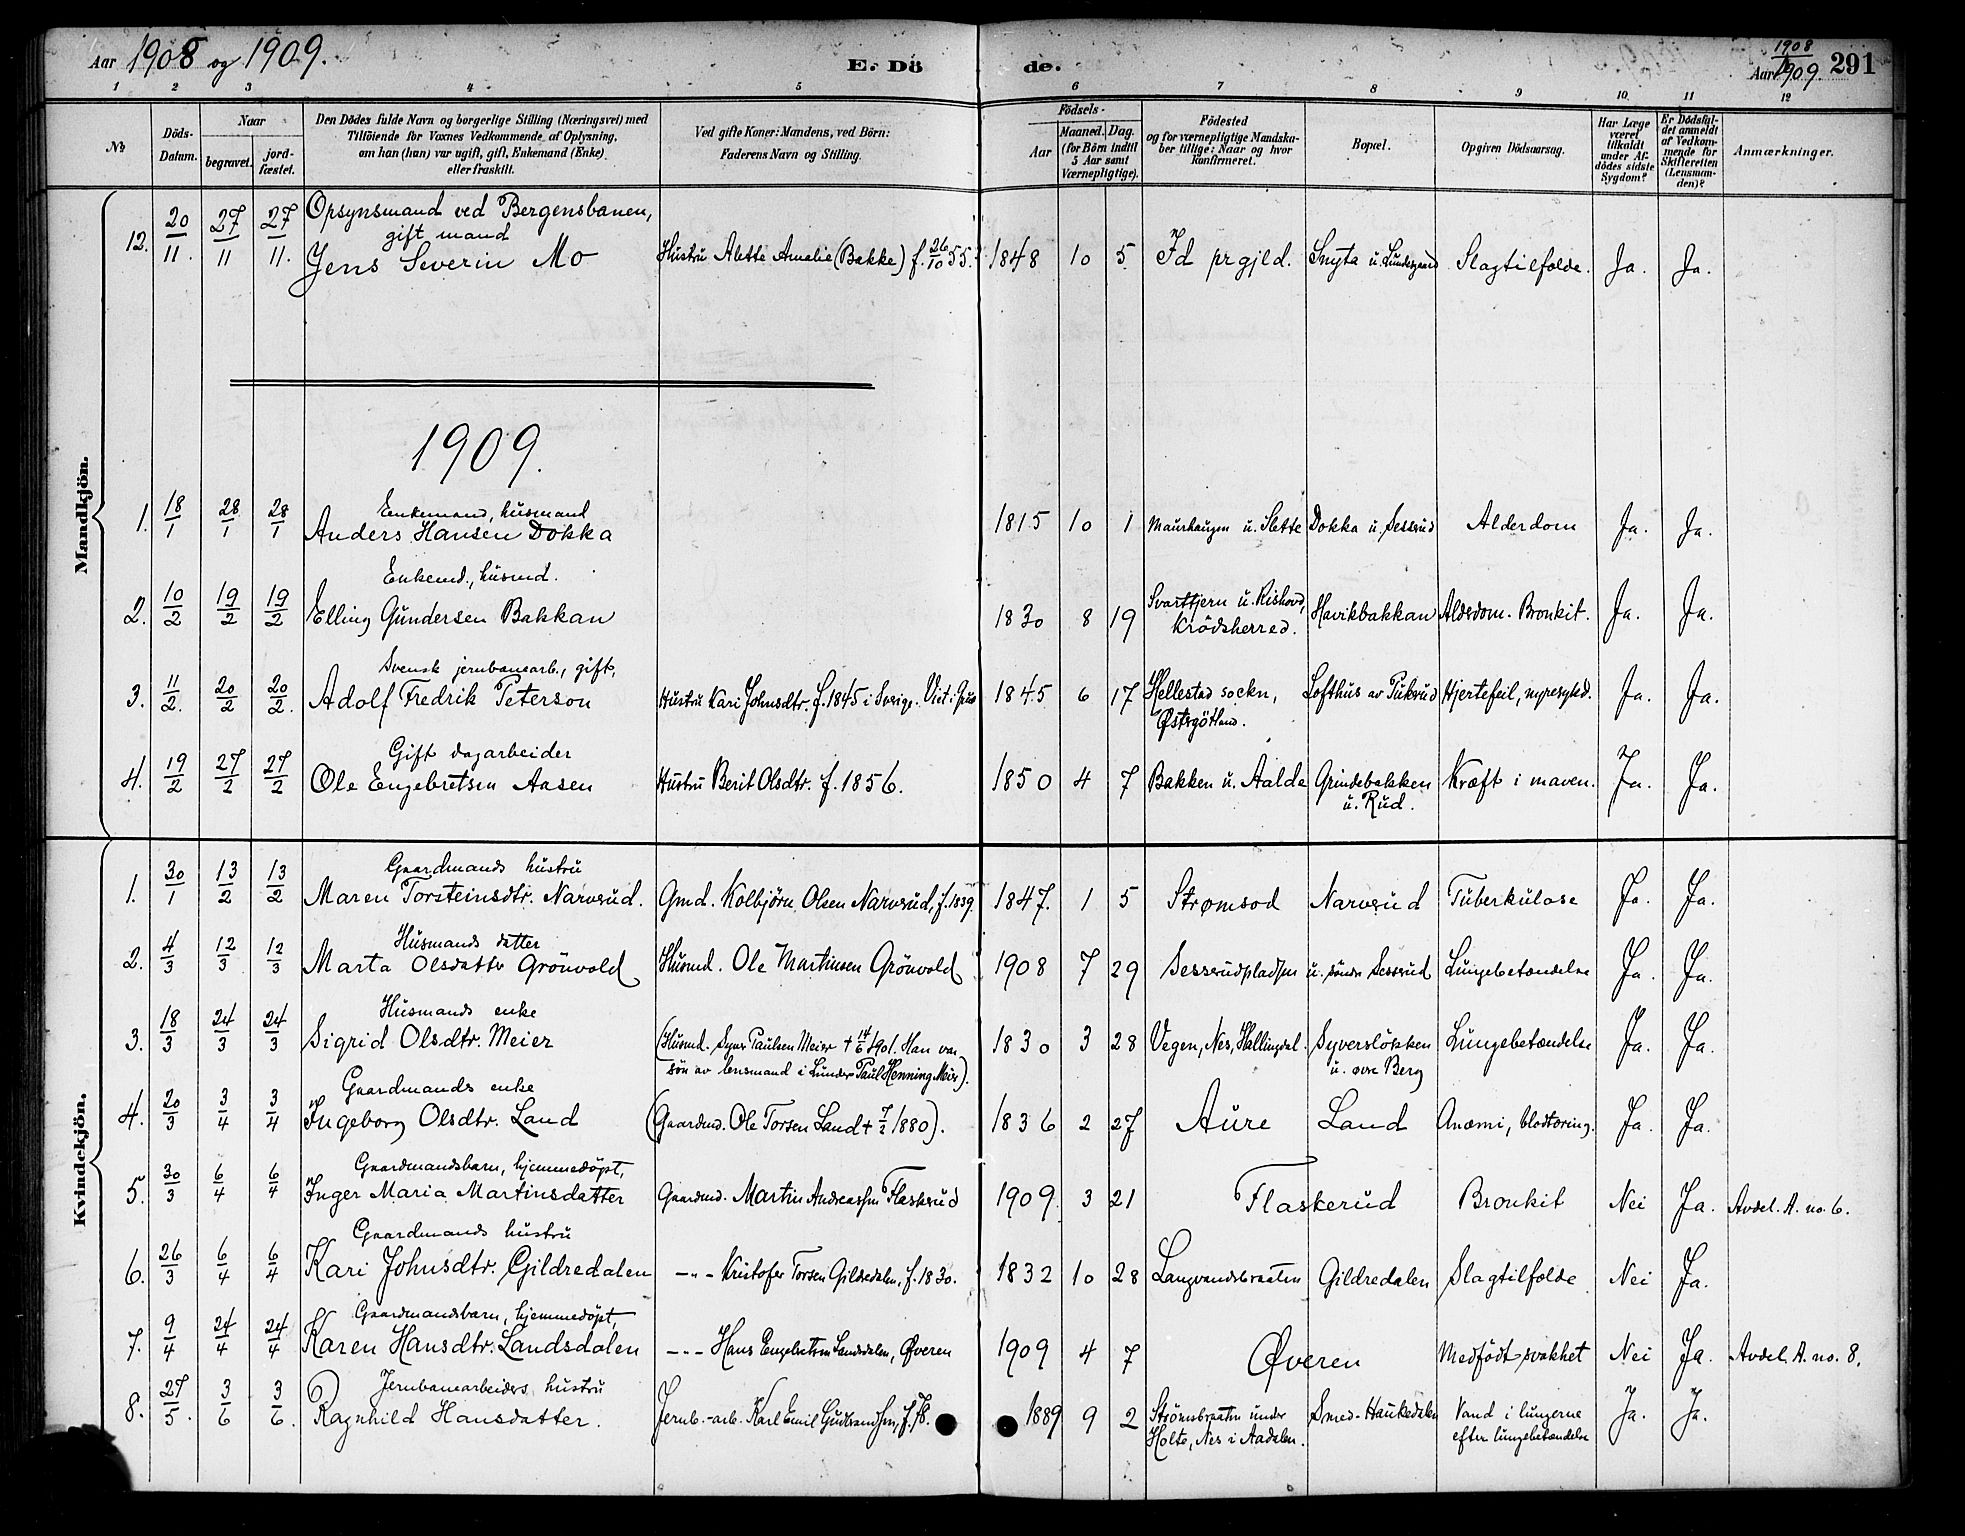 Aar 1908 og 1909.
E. Dö
de.
1908
Aar 1909.
291
1 2 3 4 5 6 7 8 9 10 11 12
No
Döds-Datum.
Naar
begravet.
jord-fæstet.
Den Dödes fulde Navn og borgerlige Stilling (Næringsvei) med
Tilföiende for Voxnes Vedkommende af Oplysning,
om han (hun) var ugift, gift, Enkemand (Enke)
eller fraskilt.
Ved gifte Koner: Mandens, ved Börn:
Faderens Navn og Stilling.
Födsels-
Aar
Maaned. Dag.
(for Börn indtil
5 Aar samt
Værnepligtige).
Födested
og for værnepligtige Mandska-
ber tillige: Naar og hvor
Konfirmeret.
Bopæl.
Opgiven Dödsaarsag.
Har Læge
været
tilkaldt
under Af-
dödes sidste
Sygdom?
Er Dödsfal-
det anmeldt
af Vedkom-
mende for
Skifteretten
(Lensman-
den)?
Anmærkninger.
Mandkjön.
Opsynsmand ved Bergensbanen,
gift mand
12. 20/11. 27/11 27/11. Jens Severin Mo Hustru Alette Amalie (Bakke) f. 26/10 55. 1848 10 5 Id prgjld. Snyta u. Lundesgaard Slagtilfælde. Ja. Ja.
1909.
Enkemand, husmand
1. 18/1 28/1 28/1 Anders Hansen Dokka 1815 10 1 Maurhaugen u. Slette Dokka u. Sessrud Alderdom Ja. Ja.
Enkemd., husmd.
2. 10/2 19/2 19/2 Elling Gundersen Bakkan 1830 8 19 Svarttjern u. Rishovd, Krödsherred. Havikbakkan Alderdom. Bronkit. Ja. Ja.
Svensk jernbanearb., gift,
3. 11/2. 20/2 20/2. Adolf Fredrik Peterson Hustru Kari Johnsdtr. f. 1845 i Sverige. Viet i 1845 6 17 Hellestad sockn, Östergötland. Lofthus av Tukrud Hjertefeil, nyresyked. Ja. Ja.
Gift dagarbeider
4. 19/2 27/2 27/2 Ole Engebretsen Aasen Hustru Berit Olsdtr. f. 1856. 1850 4 7 Bakken u. Aalde Grindebakken u. Rud. Kræft i maven. Ja. Ja.
Kvindekjön.
Gaardmands hustru
1. 30/1 13/2 13/2 Maren Torsteinsdtr. Narverud. Gmd. Kolbjörn Olsen Narverud, f. 1839. 1847. 1 5 Strømsod Narverud Tuberkulose Ja. Ja.
Husmands datter
2. 4/3 12/3 12/3 Marta Olsdattr Grönvold Husmd. Ole Martinsen Grönvold 1908 7 29 Sesserudpladsen u. söndre Sesserud Lungebetændelse Ja. Ja.
Husmands enke
3. 18/3 24/3 24/3 Sigrid Olsdtr. Meier (Husmd. Syver Paulsen Meier + 14/6 1901. Han var sön av lensmand i Lunder Paul Henning Meier). 1830 3 28 Vegen, Nes, Hallingdal. Syverslökken u. övre Berg Lungebetændelse Ja. Ja.
Gaardmands enke
4. 20/3 3/4 3/4 Ingeborg Olsdtr. Land (Gaardmd. Ole Torsen Land + 7/2 1880). 1836 2 27 Aure Land Anæmi, blodtæring. Ja. Ja.
Gaardmandsbarn, hjemmedöpt,
5. 30/3 6/4 6/4 Inger Maria Martinsdatter Gaardmd. Martin Andreassen Flaskerud 1909 3 21 Flaskerud Bronkit Nei Ja. Avdel. A. no. 6.
Gaardmands hustru
6. 26/3 6/4 6/4 Kari Johnsdtr. Gildredalen –"– Kristofer Torsen Gildredalen, f. 1830. 1832 10 28 Langvandsbraaten Gildredalen Slagtilfælde Nei Ja.
Gaardmandsbarn, hjemmedöpt,
7. 9/4 24/4 24/4 Karen Hansdtr. Landsdalen –"– Hans Engebretsen Landsdalen, Øveren 1909 4 7 Øveren Medfödt svakhet Nei Ja. Avdel. A. no. 8.
Jernbanearbeiders hustru
8. 27/5. 3/6 3/6. Ragnhild Hansdatter. Jernb.-arb. Karl Emil Gudbrandsen, f. 78. 1889 9 2 Strömsbraaten under Holte, Nes i Aadalen. Smed-Haukedalen Vand i lungerne efter lungebetændelse Ja. Ja.